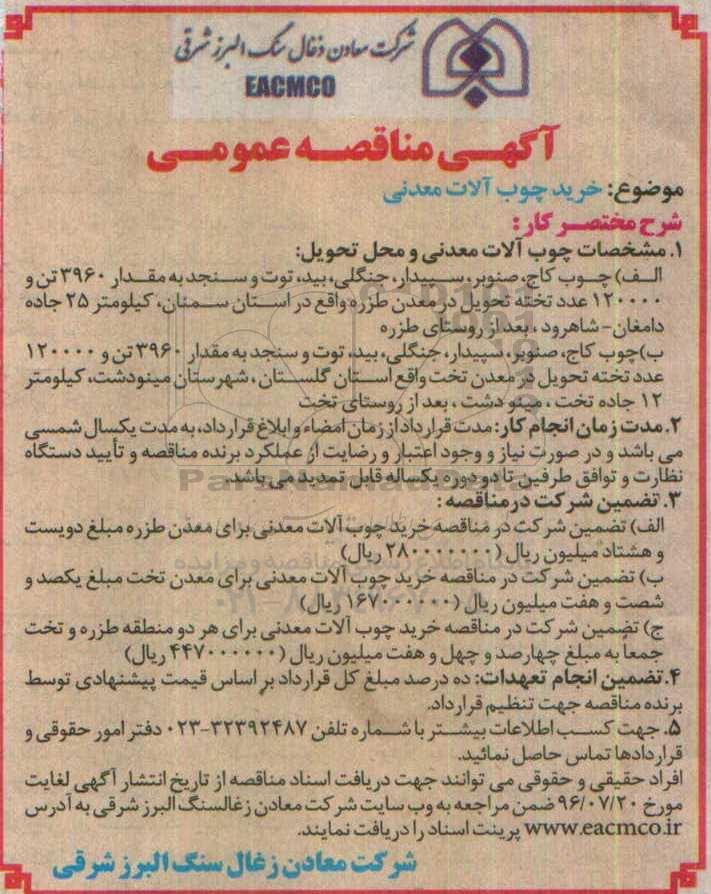 شرکت معادن ذغال سنگ البرز شرقی
EACMCO
آگهی مناقصه عمومی
موضوع: خرید چوب آلات معدنی
شرح مختصر کار:
۱. مشخصات چوب آلات معدنی و محل تحویل:
الف) چوب کاج، صنوبر، سپیدار، جنگلی، بید، توت و سنجد به مقدار ۳۹۶۰ تن و
۱۲۰۰۰۰ عدد تخته تحویل در معدن طزره واقع در استان سمنان، کیلومتر ۲۵ جاده
دامغان- شاهرود، بعد از روستای طزره
ب)چوب کاج، صنوبر، سپیدار، جنگلی، بید، توت و سنجد به مقدار ۳۹۶۰ تن و ۱۲۰۰۰۰
عدد تخته تحویل در معدن تخت واقع استان گلستان، شهرستان مینودشت، کیلومتر
۱۲ جاده تخت، مینو دشت، بعد از روستای تخت
۲. مدت زمان انجام کار: مدت قرارداد از زمان امضاء و ابلاغ قرارداد، به مدت یکسال شمسی
می باشد و در صورت نیاز و وجود اعتبار و رضایت از عملکرد برنده مناقصه و تأیید دستگاه
نظارت و توافق طرفین تا دو دوره یکساله قابل تمدید می باشد.
ParsNamadData
۳. تضمین شرکت در مناقصه:
الف) تضمین شرکت در مناقصه خرید چوب آلات معدنی برای معدن طزره مبلغ دویست
و هشتاد میلیون ریال (۲۸۰۰۰۰۰۰۰ ریال)
ب) تضمین شرکت در مناقصه خرید چوب آلات معدنی برای معدن تخت مبلغ یکصد و
شصت و هفت میلیون ریال (۱۶۷۰۰۰۰۰۰ ریال)
ج) تضمین شرکت در مناقصه خرید چوب آلات معدنی برای هر دو منطقه طزره و تخت
جمعاً به مبلغ چهارصد و چهل و هفت میلیون ریال (۴۴۷۰۰۰۰۰۰ ریال)
۴. تضمین انجام تعهدات: ده درصد مبلغ کل قرارداد بر اساس قیمت پیشنهادی توسط
برنده مناقصه جهت تنظیم قرارداد.
۵. جهت کسب اطلاعات بیشتر با شماره تلفن ۳۲۳۹۲۴۸۷-۰۲۳ دفتر امور حقوقی و
قراردادها تماس حاصل نمائید.
افراد حقیقی و حقوقی می توانند جهت دریافت اسناد مناقصه از تاریخ انتشار آگهی لغایت
مورخ ۹۶/۰۷/۲۰ ضمن مراجعه به وب سایت شرکت معادن زغالسنگ البرز شرقی به آدرس
www.eacmco.ir پرینت اسناد را دریافت نمایند.
شرکت معادن زغال سنگ البرز شرقی